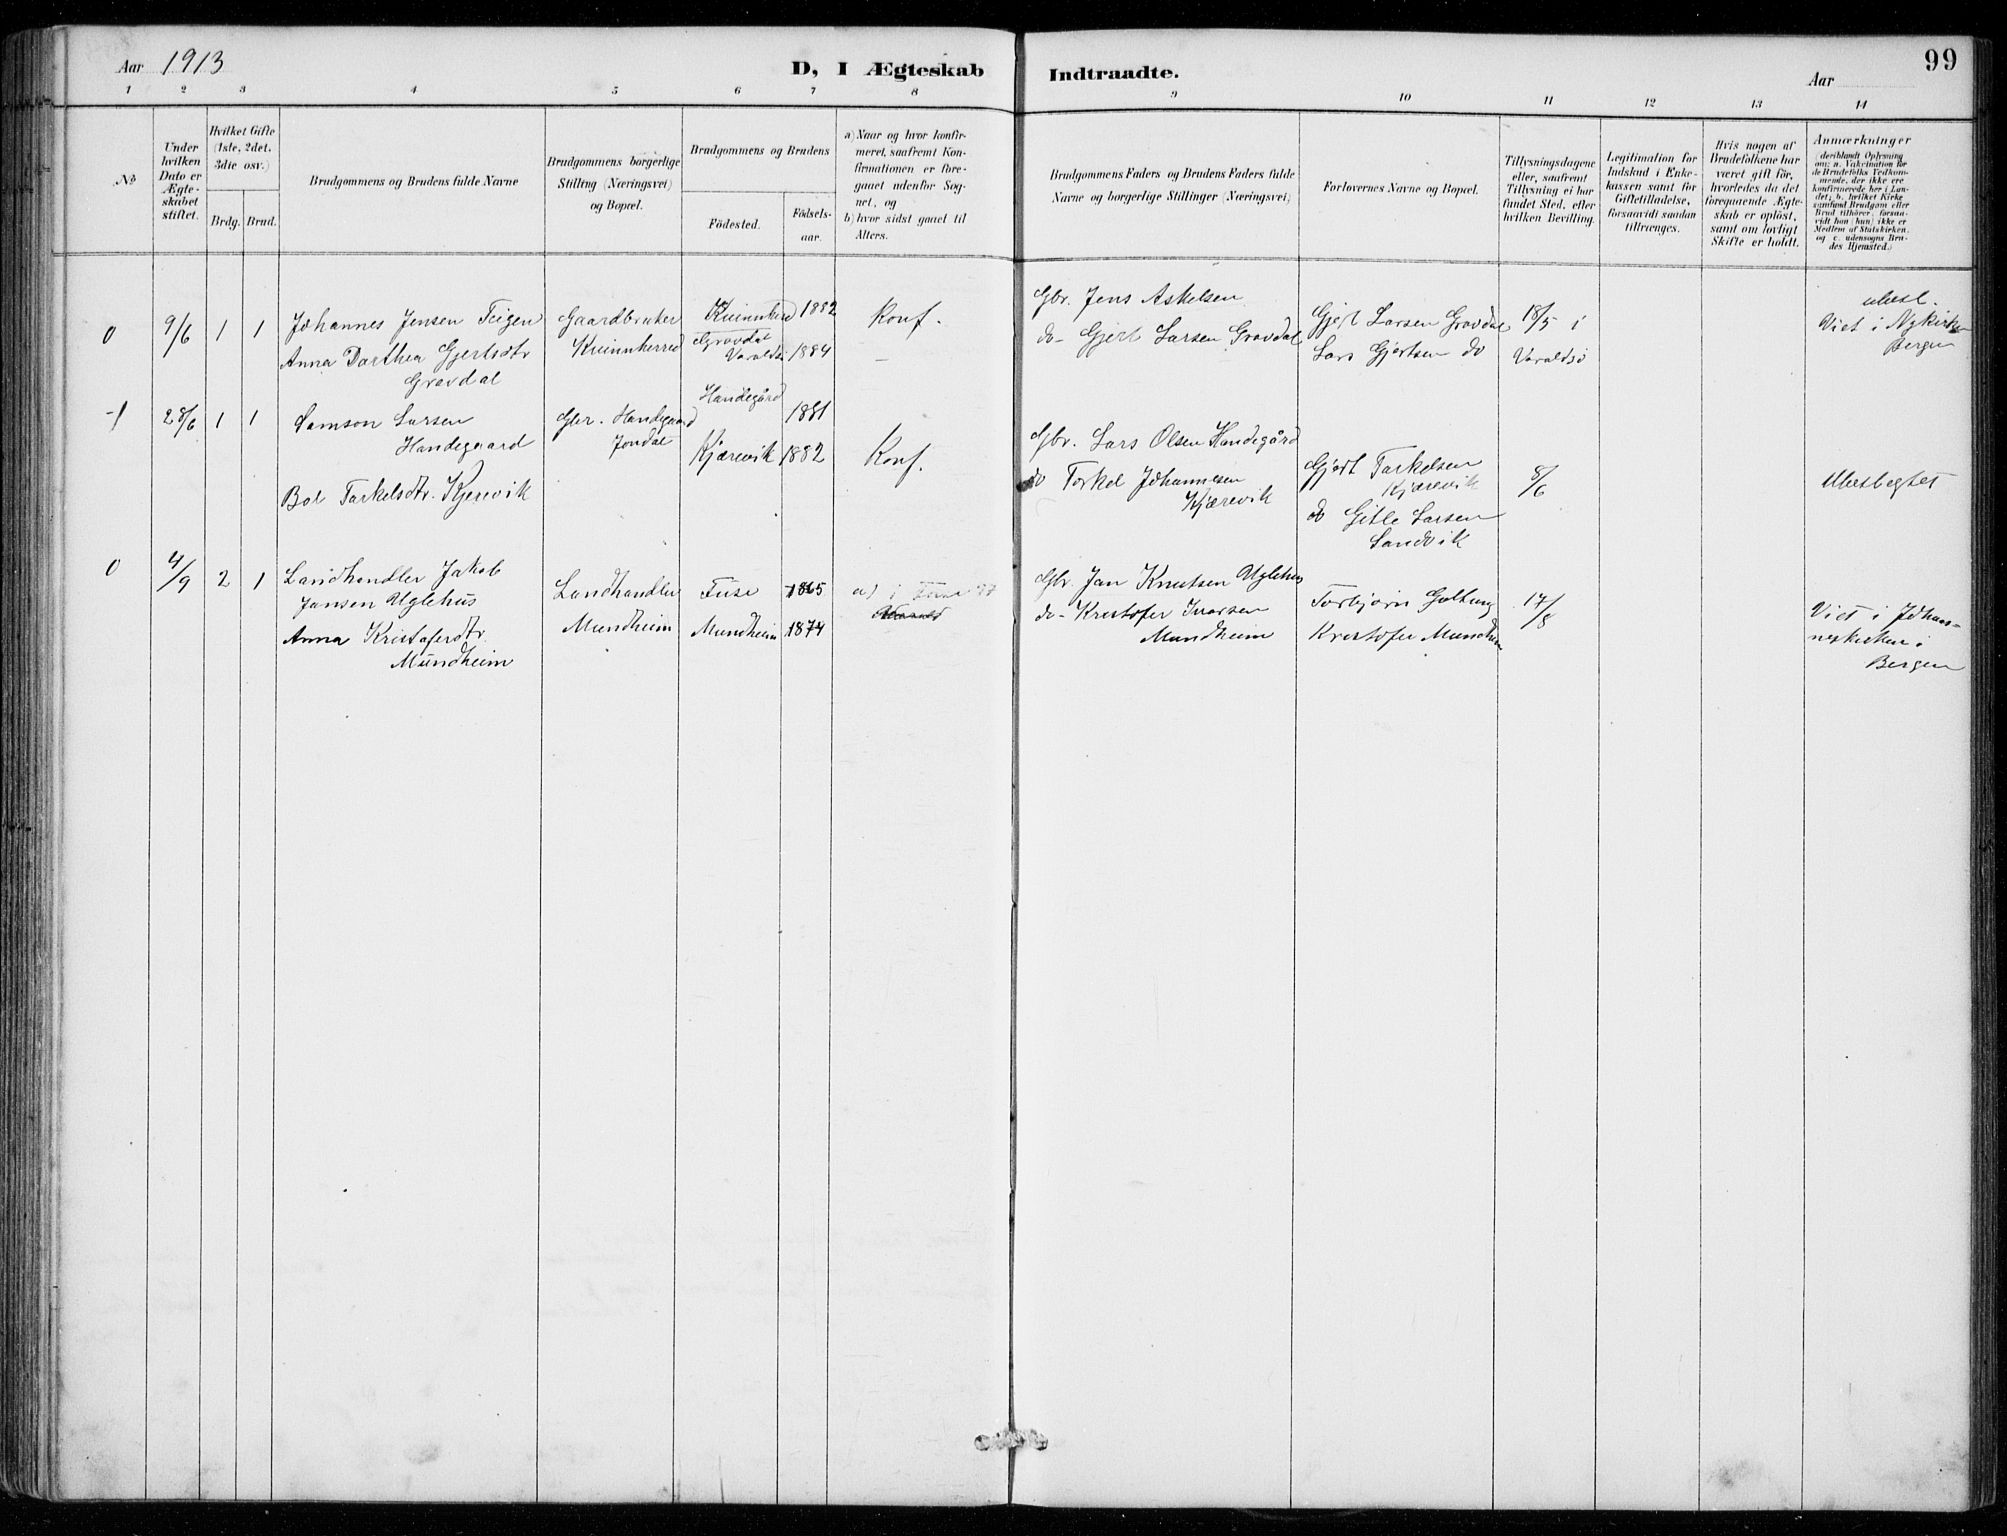 Aar 1913
D, I Ægteskab
Indtraadte.
Aar
99
1 2 3 4 5 6 7 8 9 10 11 12 13 14
No
Under hvilken Dato er Ægteskabet stiftet.
Hvilket Gifte (1ste, 2det, 3die osv.)
Brdg. Brud.
Brudgommens og Brudens fulde Navne
Brudgommens borgerlige Stilling (Næringsvei) og Bopæl.
Brudgommens og Brudens
Födested.
Födsels-aar.
a) Naar og hvor konfir-
meret, saafremt Kon-
firmationen er fore-
gaaet udenfor Sog-
net, og
b) hvor sidst gaaet til
Alters.
Brudgommens Faders og Brudens Faders fulde
Navne og borgerlige Stillinger (Næringsvei)
Forlovernes Navne og Bopæl.
Tillysningsdagene
eller, saafremt
Tillysning ei har
fundet Sted, efter
hvilken Bevilling.
Legitimation for
Indskud i Enke-
kassen samt for
Giftetilladelse,
forsaavidt saadan
tiltrænges.
Hvis nogen af
Brudefolkene har
været gift för,
hvorledes da det
foregaaende Ægte-
skab er oplöst,
samt om lovligt
Skifte er holdt.
Anmærkninger
(deriblandt Oplysning
om: a. Vakcination for
de Brudefolks Vedkom-
mende, der ikke ere
konfirmerede her i Lan-
det; b. hvilket Kirke
samfund Brudgom eller
Brud tilhörer, forsaa-
vidt han (hun) ikke er
Medlem af Statskirken.
og c. udensogns Bru-
des Hjemsted.)
0 9/6 1 1
Johannes Jensen Teigen
Anna Dorthea Gjertsdtr
Gravdal
Gaardbruker
Kvinnherred
Kvinnherred 1882
Gravdal
Varaldsö 1884
Konf.
—
Gbr. Jens Askelsen
do- Gjert Larsen Gravdal
Gjert Larsen Gravdal
Lars Gjertsen do
18/5 i
Varaldsö
ubest.
Viet i Nykirken
Bergen
-1 28/6 1 1
Samson Larsen
Handegaard
Bol Torkelsdtr. Kjerevik
Gbr. Handegaard
Jondal
Handegård 1881
Kjærevik 1882
Konf.
Gbr. Lars Olsen Handegård
do Torkel Johannesen
Kjærevik
Gjert Torkelsen
Kjærevik
do Gitle Larsen
Sandvik
8/6
Ubeslegtet
0 4/9 2 1
Landhandler Jakob
Jansen Uglehus
Anna Kristofersdtr.
Mundheim
Landhandler
Mundheim
Fuse 1865
Mundheim 1874
a) i Fuse
Gbr. Jan Knutsen Uglehus
do- Kristofer Ivarsen
Mundheim
Torbjørn Galtung
Kristofer Mundheim
17/8
Viet i Johan-
neskirken i
Bergen